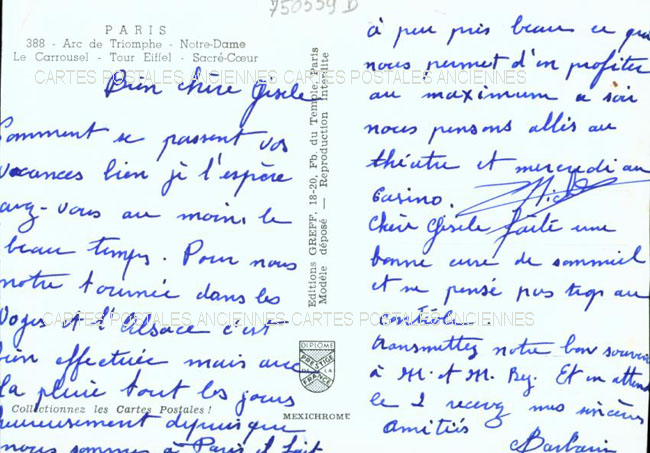 750559 D
PARIS
388 - Arc de Triomphe - Notre-Dame
Le Carrousel - Tour Eiffel - Sacré-Cœur
CARTES POSTALES ANCIENNES CARTES POSTALES ANCIENNES
Bien chère Gisele
Comment se passent vos
vacances bien je l'espère
avez-vous au moins le
beau temps. Pour nous
notre tournée dans les
Voges et l'Alsace c'est
bien effectuée mais avec
la pluie tout les jours
heureusement depuis que
nous sommes à Paris il fait
Collectionnez les Cartes Postales !
Editions GREFF, 18-20, Fb. du Temple, Paris
Modèle déposé — Reproduction Interdite
CARTES POSTALES ANCIENNES CARTES POSTALES ANCIENNES
DIPLOME
PRESTIGE
DE LA
FRANCE
MEXICHROME
à peu près beau ce qui
nous permet d'en profiter
au maximum ce soir
nous pensons allés au
théatre et mercredi au
Casino.
Chère Gisele faite une
bonne cure de sommeil
et ne pensé pas trop au
contrôle.
transmettez notre bon souvenir
à M. et M. Rey. Et en attend
le 2 recevez mes sincères
amitiés
Barbara